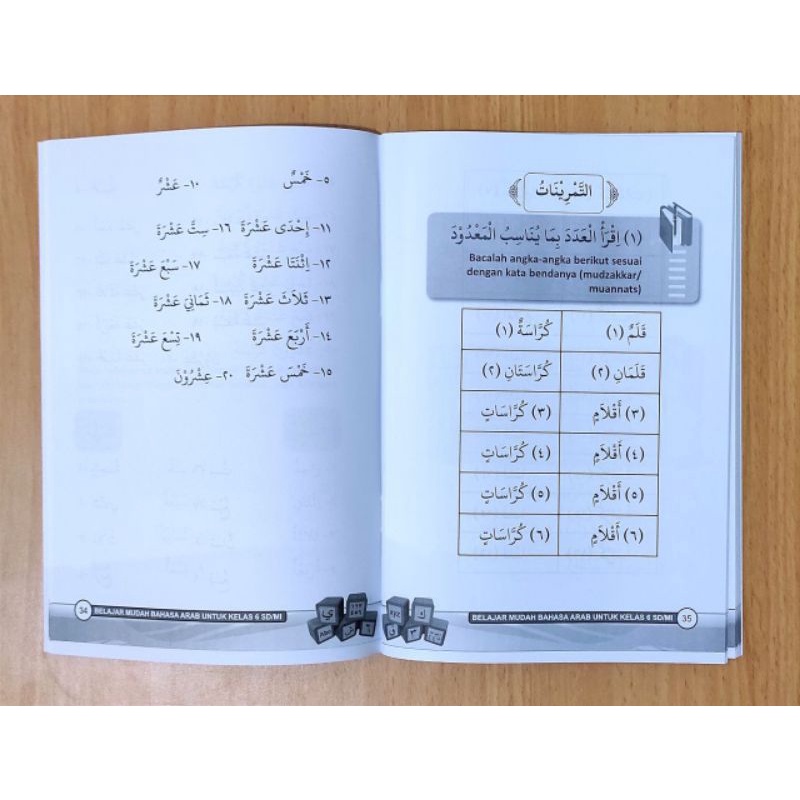 ٥- خَمْسٌ ١٠- عَشْرٌ
١١- إِحْدَى عَشْرَةَ ١٦- سِتَّ عَشْرَةَ
١٢- اِثْنَتَا عَشْرَةَ ١٧- سَبْعَ عَشْرَةَ
١٣- ثَلَاثَ عَشْرَةَ ١٨- ثَمَانِيَ عَشْرَةَ
١٤- أَرْبَعَ عَشْرَةَ ١٩- تِسْعَ عَشْرَةَ
١٥- خَمْسَ عَشْرَةَ ٢٠- عِشْرُوْنَ
34 BELAJAR MUDAH BAHASA ARAB UNTUK KELAS 6 SD/MI
التَّمْرِيْنَاتُ
(١) اِقْرَأْ الْعَدَدَ بِمَا يُنَاسِبُ الْمَعْدُوْدَ
Bacalah angka-angka berikut sesuai
dengan kata bendanya (mudzakkar/
muannats)
قَلَمٌ (١) كُرَّاسَةٌ (١)
قَلَمَانِ (٢) كُرَّاسَتَانِ (٢)
(٣) أَقْلَامٍ (٣) كُرَّاسَاتٍ
(٤) أَقْلَامٍ (٤) كُرَّاسَاتٍ
(٥) أَقْلَامٍ (٥) كُرَّاسَاتٍ
(٦) أَقْلَامٍ (٦) كُرَّاسَاتٍ
BELAJAR MUDAH BAHASA ARAB UNTUK KELAS 6 SD/MI 35